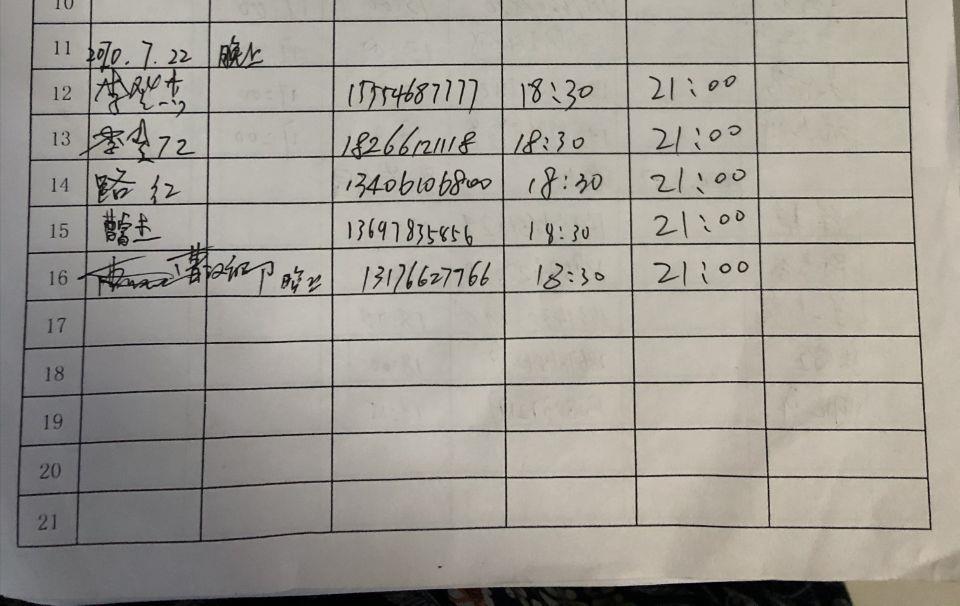 10
11 2020.7.22 晚上
12 15554687777 18:30 21:00
13 李 18266121118 18:30 21:00
14 路红 13406106800 18:30 21:00
15 曹杰 13697835856 18:30 21:00
16 晚上 13176627766 18:30 21:00
17
18
19
20
21